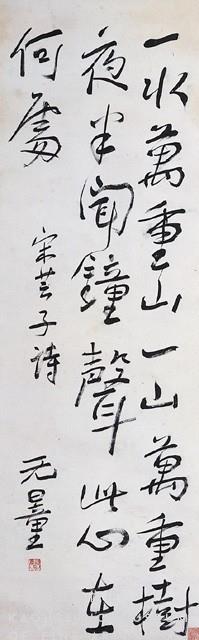 一水萬重山一山萬重樹
夜半聞鐘聲此心在
何處
宋芸子詩
无量